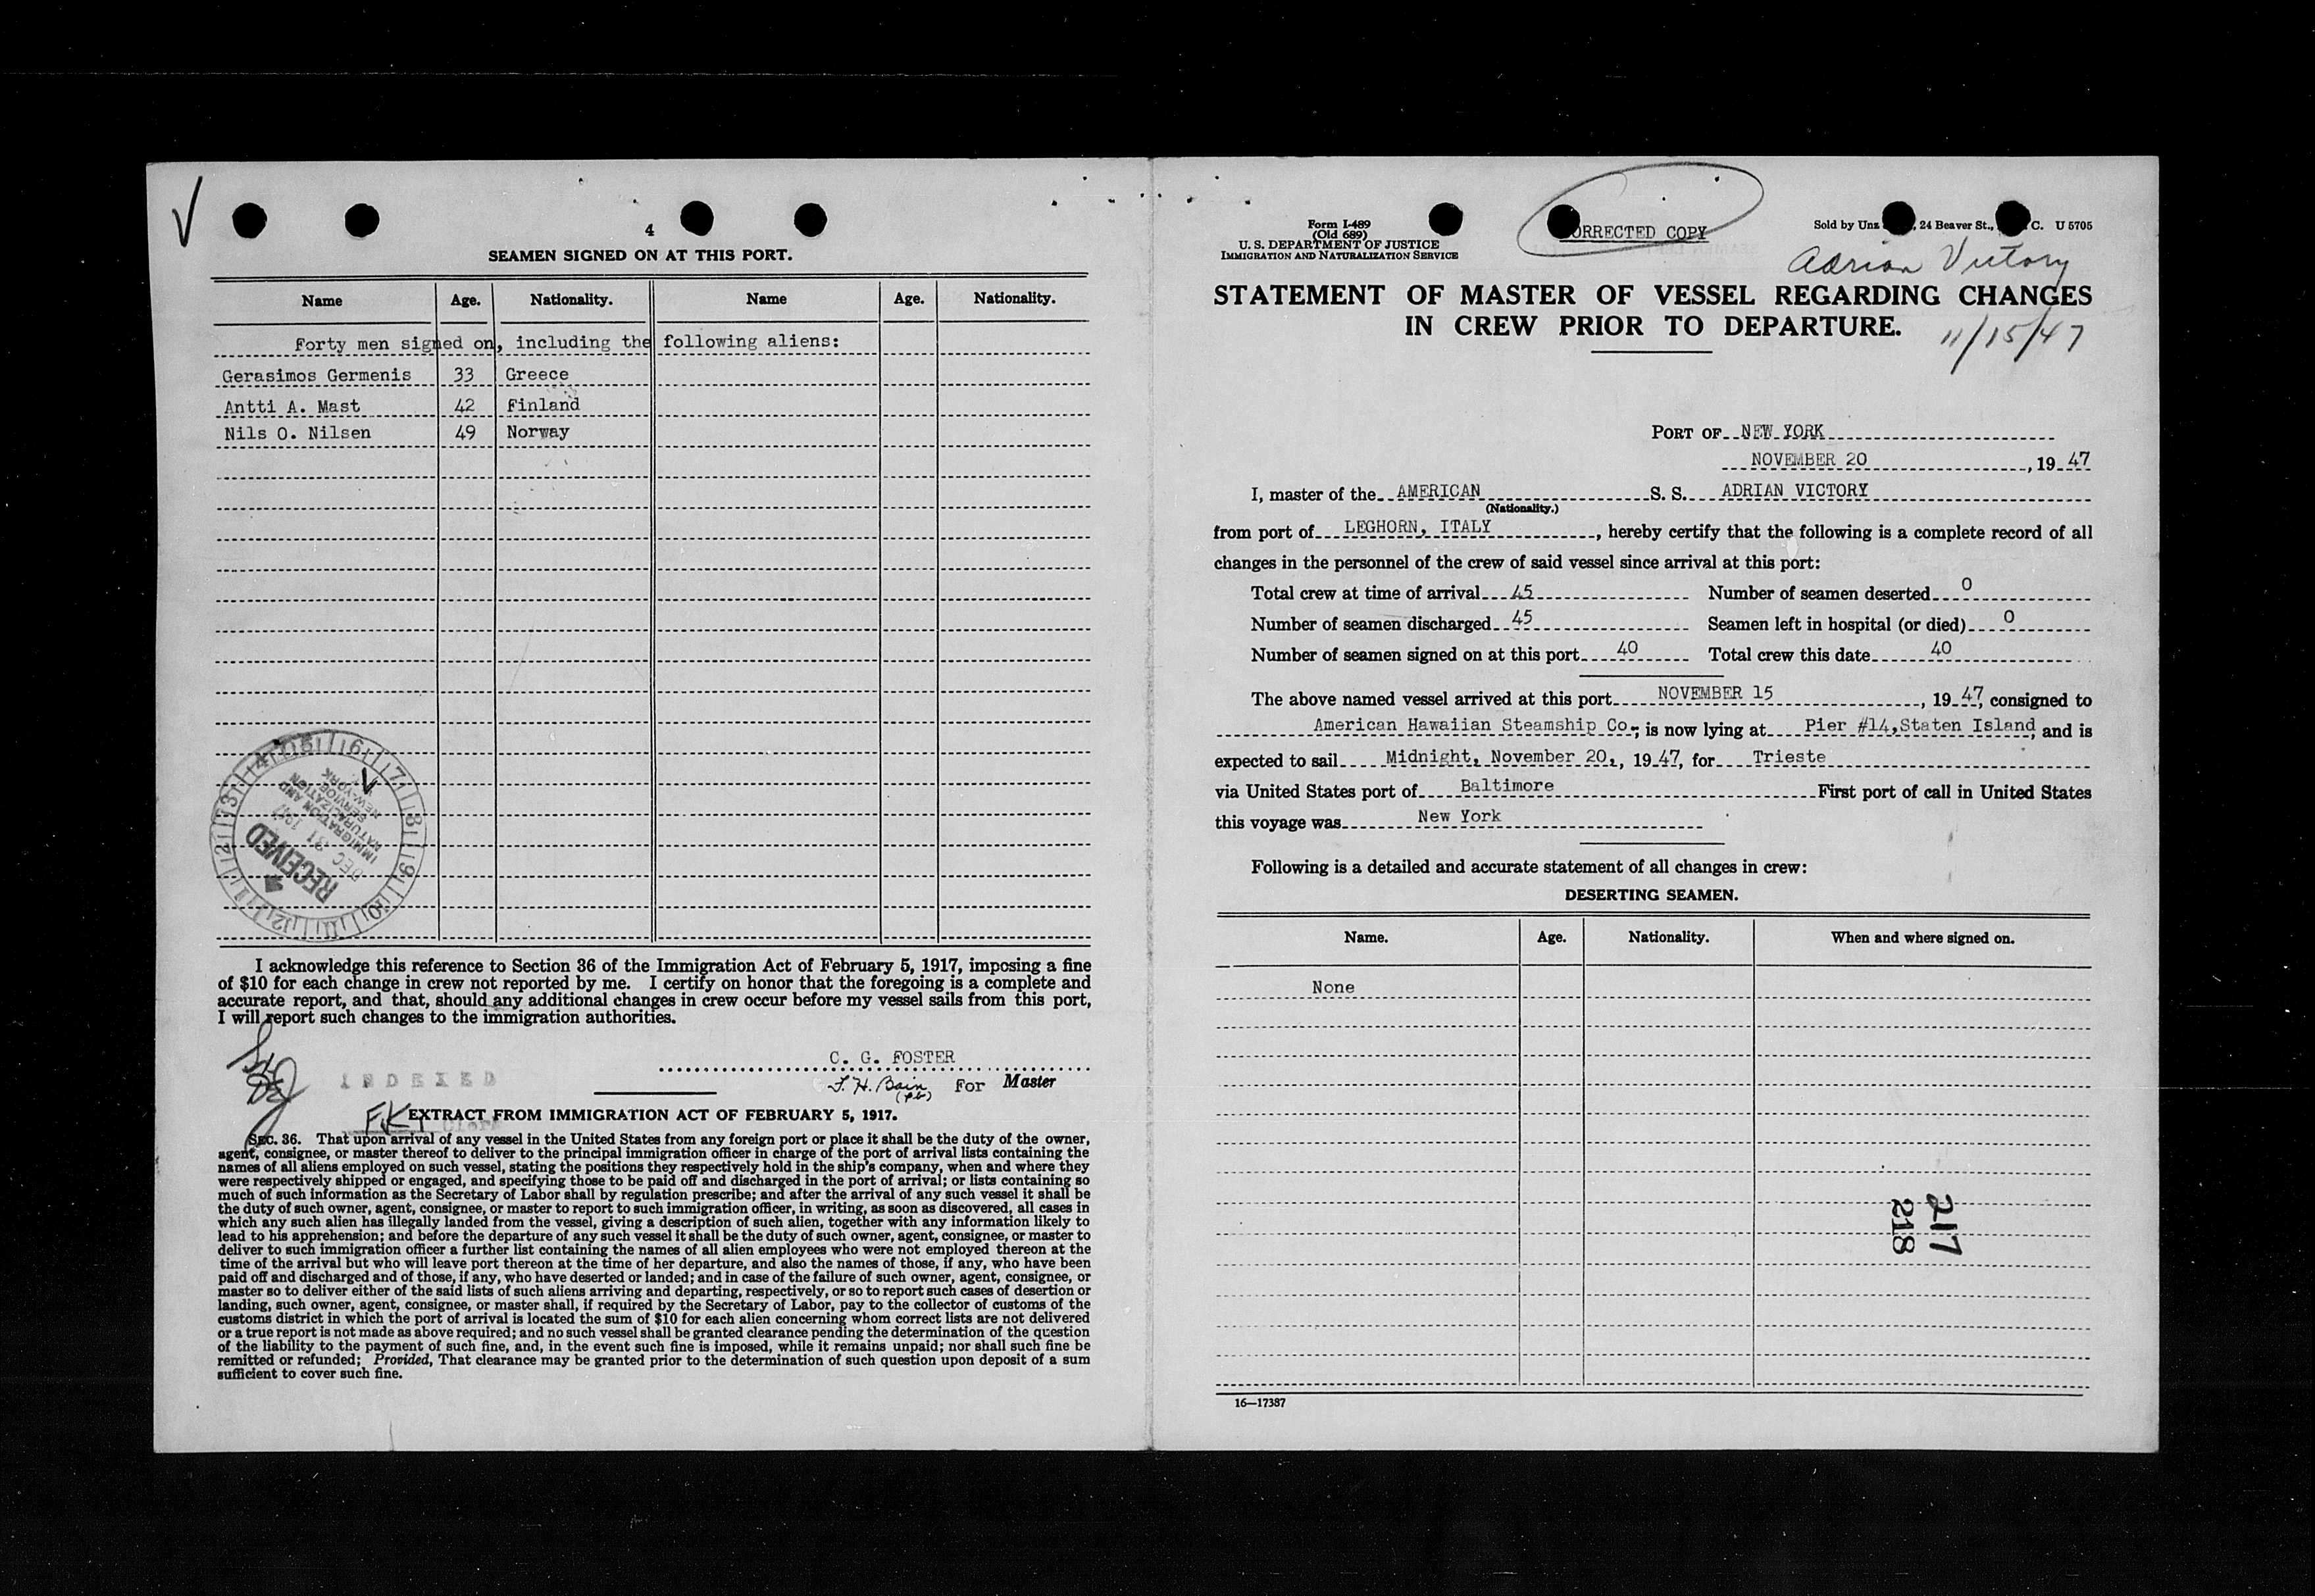 4
SEAMEN SIGNED ON AT THIS PORT.
Name Age. Nationality. Name Age. Nationality.
Forty men signed on, including the following aliens:
Gerasimos Germenis 33 Greece
Antti A. Mast 42 Finland
Nils O. Nilsen 49 Norway
RECEIVED
DEC 31 1947
IMMIGRATION AND
NATURALIZATION
SERVICE
NEW YORK
I acknowledge this reference to Section 36 of the Immigration Act of February 5, 1917, imposing a fine
of $10 for each change in crew not reported by me. I certify on honor that the foregoing is a complete and
accurate report, and that, should any additional changes in crew occur before my vessel sails from this port,
I will report such changes to the immigration authorities.
C. G. FOSTER
J. H. Bain For Master
INDEXED
EXTRACT FROM IMMIGRATION ACT OF FEBRUARY 5, 1917.
SEC. 36. That upon arrival of any vessel in the United States from any foreign port or place it shall be the duty of the owner,
agent, consignee, or master thereof to deliver to the principal immigration officer in charge of the port of arrival lists containing the
names of all aliens employed on such vessel, stating the positions they respectively hold in the ship's company, when and where they
were respectively shipped or engaged, and specifying those to be paid off and discharged in the port of arrival; or lists containing so
much of such information as the Secretary of Labor shall by regulation prescribe; and after the arrival of any such vessel it shall be
the duty of such owner, agent, consignee, or master to report to such immigration officer, in writing, as soon as discovered, all cases in
which any such alien has illegally landed from the vessel, giving a description of such alien, together with any information likely to
lead to his apprehension; and before the departure of any such vessel it shall be the duty of such owner, agent, consignee, or master to
deliver to such immigration officer a further list containing the names of all alien employees who were not employed thereon at the
time of the arrival but who will leave port thereon at the time of her departure, and also the names of those, if any, who have been
paid off and discharged and of those, if any, who have deserted or landed; and in case of the failure of such owner, agent, consignee, or
master so to deliver either of the said lists of such aliens arriving and departing, respectively, or so to report such cases of desertion or
landing, such owner, agent, consignee, or master shall, if required by the Secretary of Labor, pay to the collector of customs of the
customs district in which the port of arrival is located the sum of $10 for each alien concerning whom correct lists are not delivered
or a true report is not made as above required; and no such vessel shall be granted clearance pending the determination of the question
of the liability to the payment of such fine, and, in the event such fine is imposed, while it remains unpaid; nor shall such fine be
remitted or refunded; Provided, That clearance may be granted prior to the determination of such question upon deposit of a sum
sufficient to cover such fine.
Form I-489
(Old 689)
U. S. DEPARTMENT OF JUSTICE
IMMIGRATION AND NATURALIZATION SERVICE
ORRECTED COPY
Sold by Unz , 24 Beaver St., C. U 5705
Adrian Victory
STATEMENT OF MASTER OF VESSEL REGARDING CHANGES
IN CREW PRIOR TO DEPARTURE.
11/15/47
PORT OF NEW YORK
NOVEMBER 20, 19 47
I, master of the AMERICAN S. S. ADRIAN VICTORY
(Nationality.)
from port of LEGHORN, ITALY, hereby certify that the following is a complete record of all
changes in the personnel of the crew of said vessel since arrival at this port:
Total crew at time of arrival 45 Number of seamen deserted 0
Number of seamen discharged 45 Seamen left in hospital (or died) 0
Number of seamen signed on at this port 40 Total crew this date 40
The above named vessel arrived at this port NOVEMBER 15, 19 47, consigned to
American Hawaiian Steamship Co.; is now lying at Pier #14, Staten Island, and is
expected to sail Midnight, November 20., 19 47, for Trieste
via United States port of Baltimore First port of call in United States
this voyage was New York
Following is a detailed and accurate statement of all changes in crew:
DESERTING SEAMEN.
Name. Age. Nationality. When and where signed on.
None
217
218
16—17387